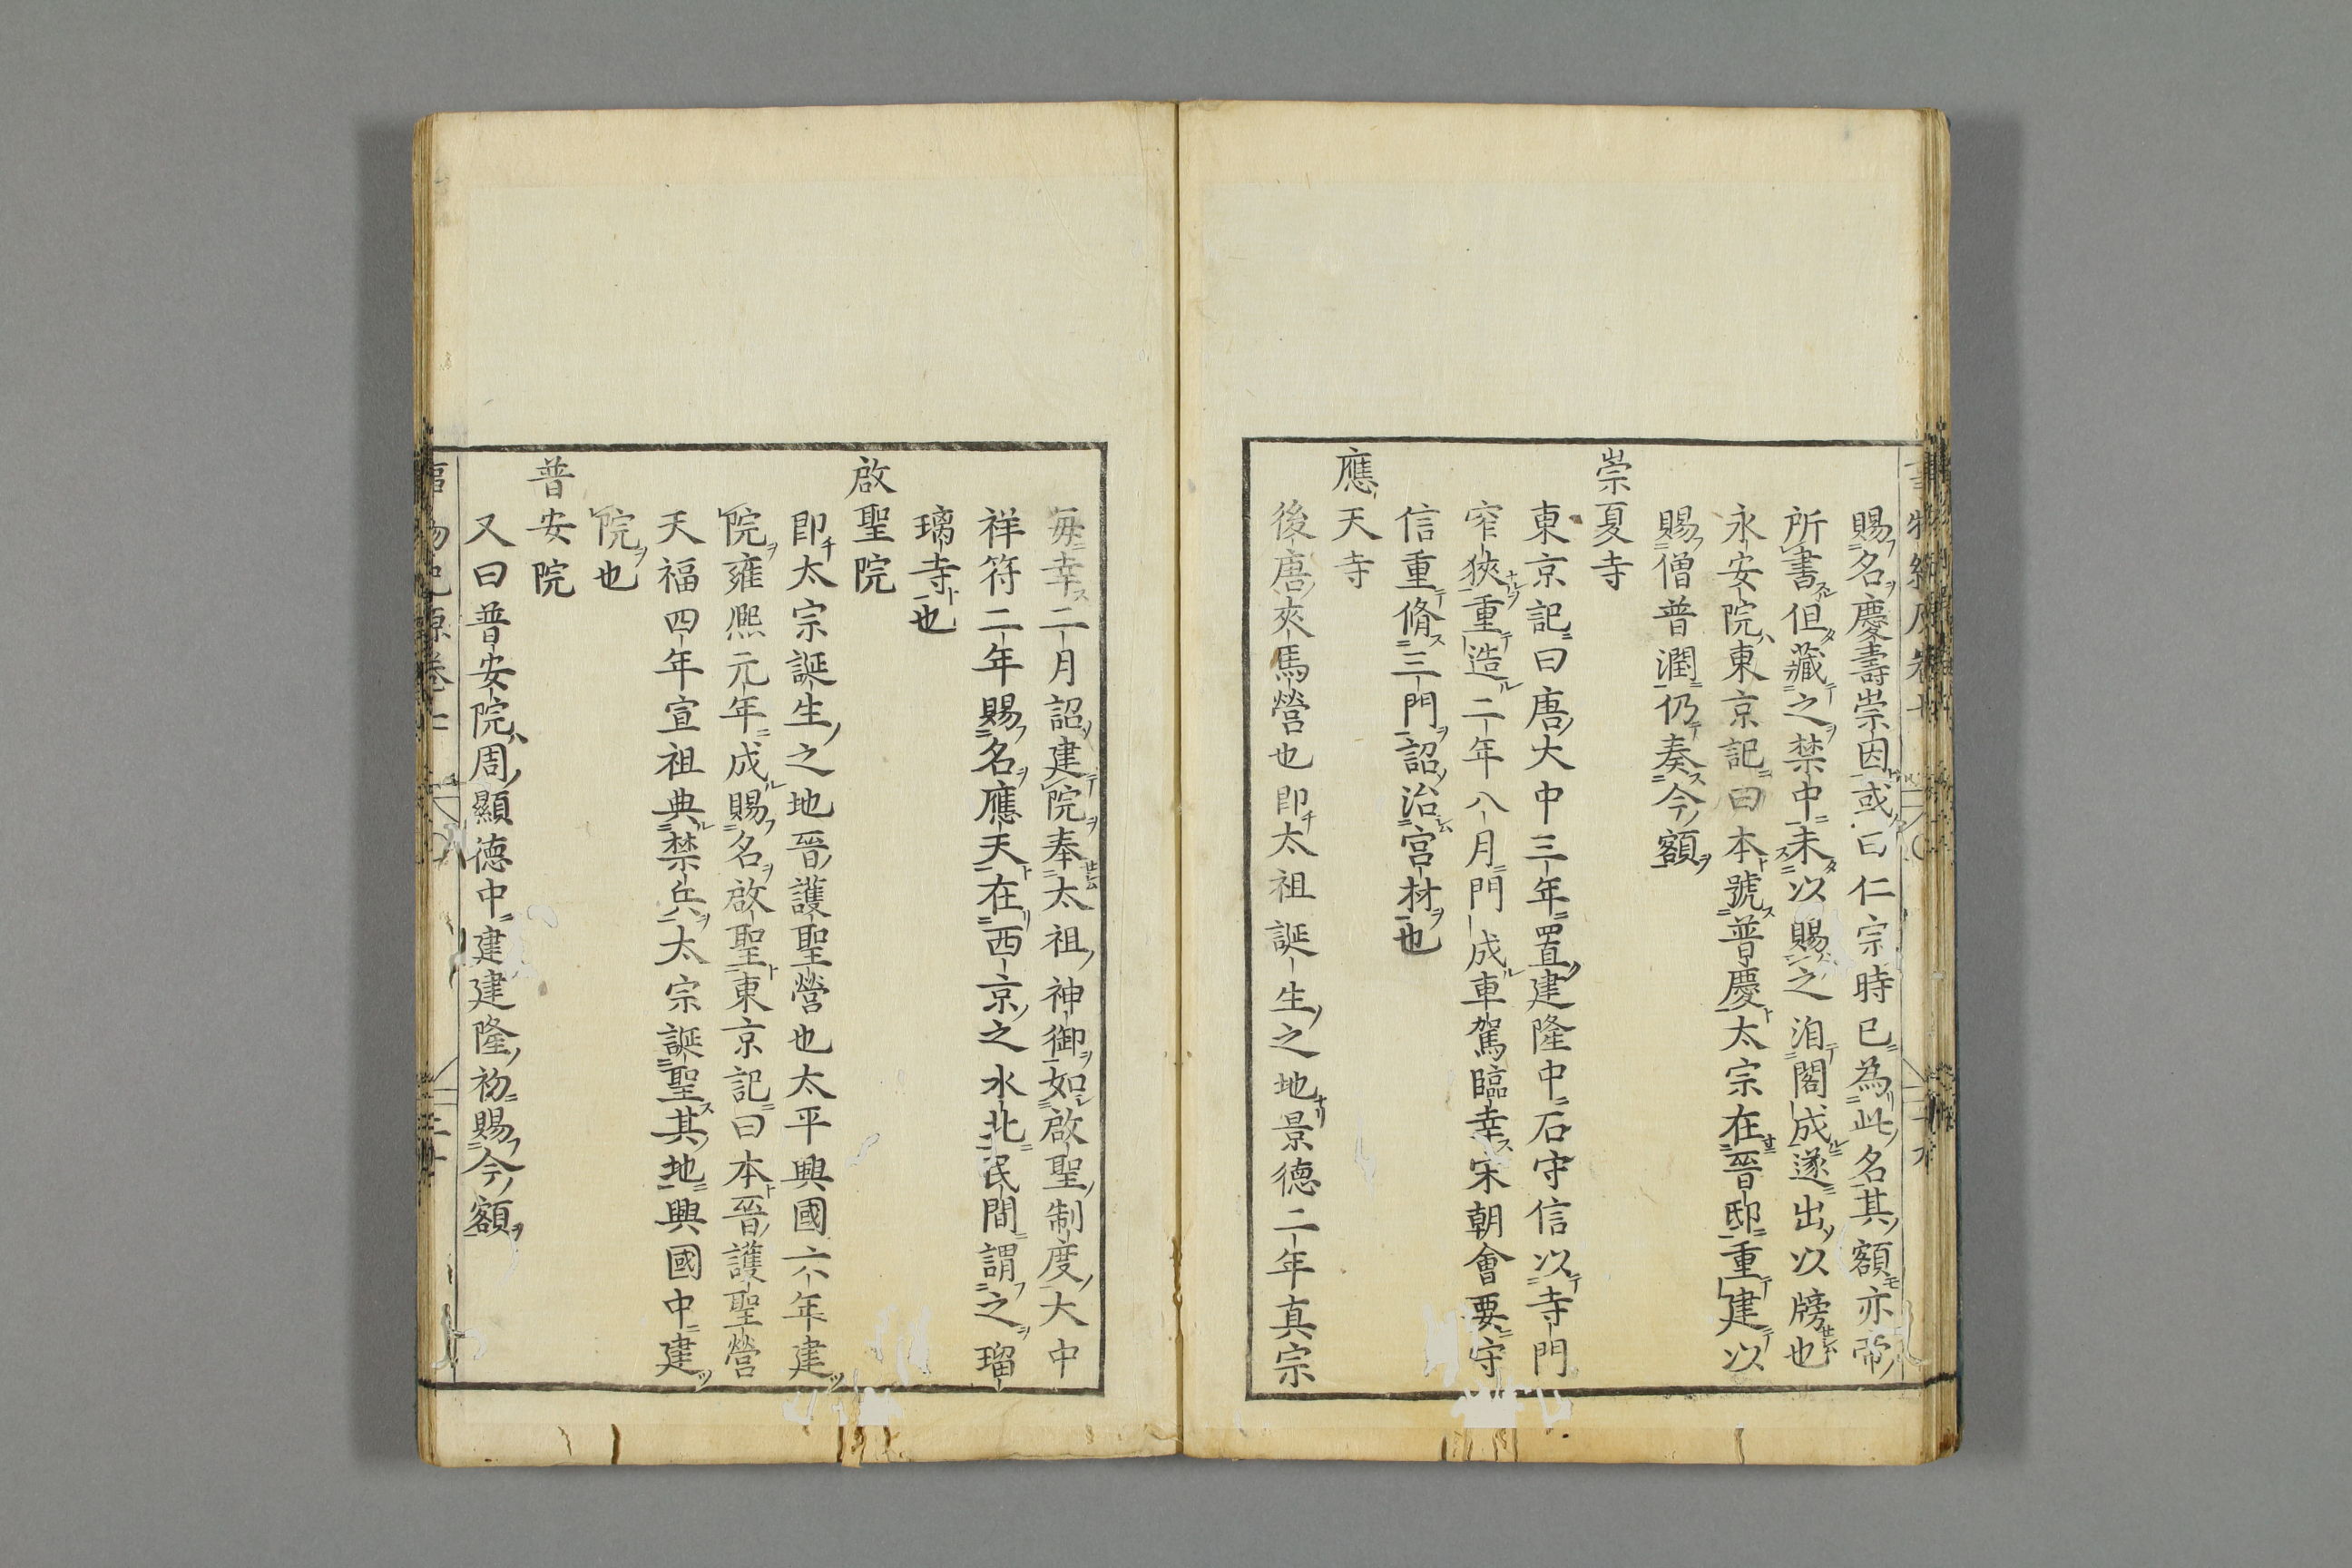 賜名慶壽崇因或曰仁宗時已為此名其額亦帝
所書但藏之禁中未以賜之洎閣成遂出以牓也
永安院東京記曰本號普慶太宗在晉邸重建以
賜僧普潤仍奏今額
崇夏寺
東京記曰唐大中三年置建隆中石守信以寺門
窄狹重造二年八月門成車駕臨幸宋朝會要守
信重脩三門詔治宮材也
應天寺
後唐夾馬營也即太祖誕生之地景德二年真宗
每幸二月詔建院奉太祖神御如啟聖制度大中
祥符二年賜名應天在西京之水北民間謂之瑠
璃寺也
啟聖院
即太宗誕生之地晉護聖營也太平興國六年建
院雍熈元年成賜名啟聖東京記曰本晉護聖營
天福四年宣祖典禁兵太宗誕聖其地興國中建
院也
普安院
又曰普安院周顯德中建建隆初賜今額